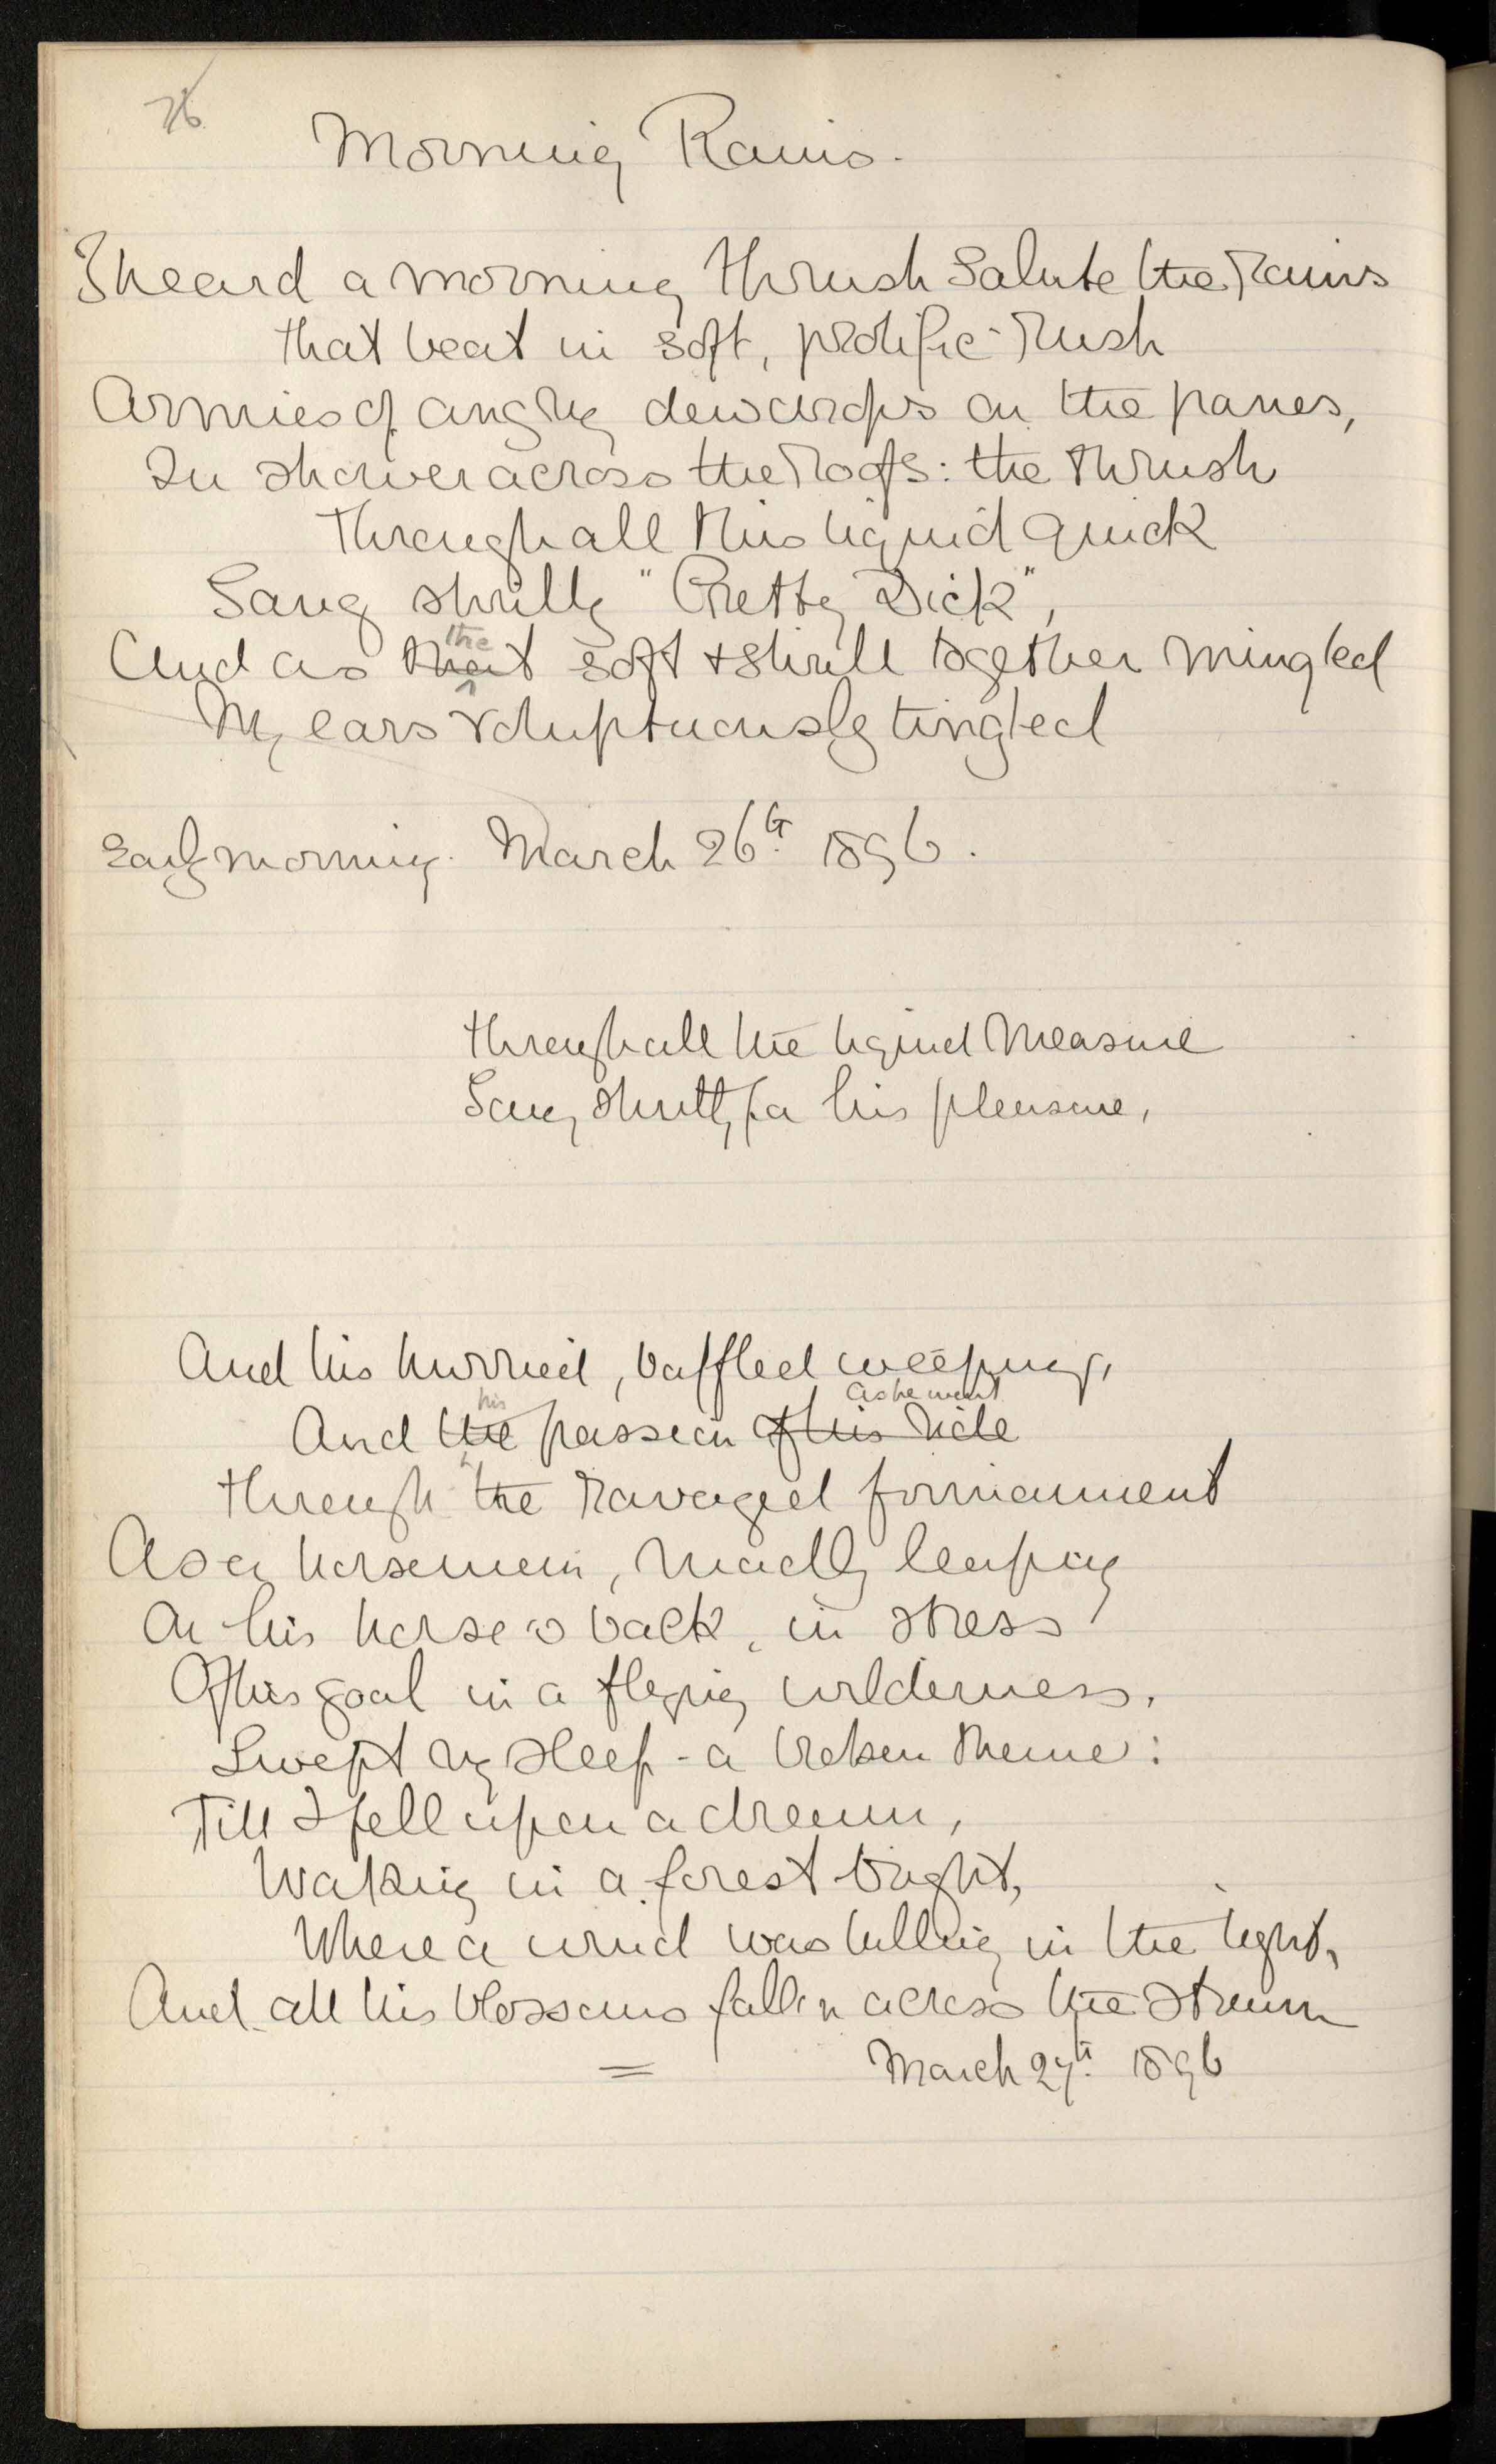 76
Morning Rains.
I heard a morning thrush salute the rains
that beat in soft, prolific rush
Armies of angry dewdrops on the panes,
In shower across the roofs: the thrush
Through all this liquid quick
Sang shrilly "Pretty Dick",
the
And as that soft + shrill together mingled
My ears voluptuously tingled
Early morning. March 26th. 1896.
through all the liquid measure
Sang shrilly for his pleasure,
And his hurried, baffled weeping,
his as he went
And the passion of his ride
through the ravaged firmament
As a horseman, madly leaping
On his horse's back, in stress
Of his goal in a flying wilderness,
Swept by sleep - a broken theme:
Till I fell upon a dream,
Waking in a forest bright,
Where a wind was lulling in the light,
And all his blossoms fallen across the stream
= March 27th. 1896